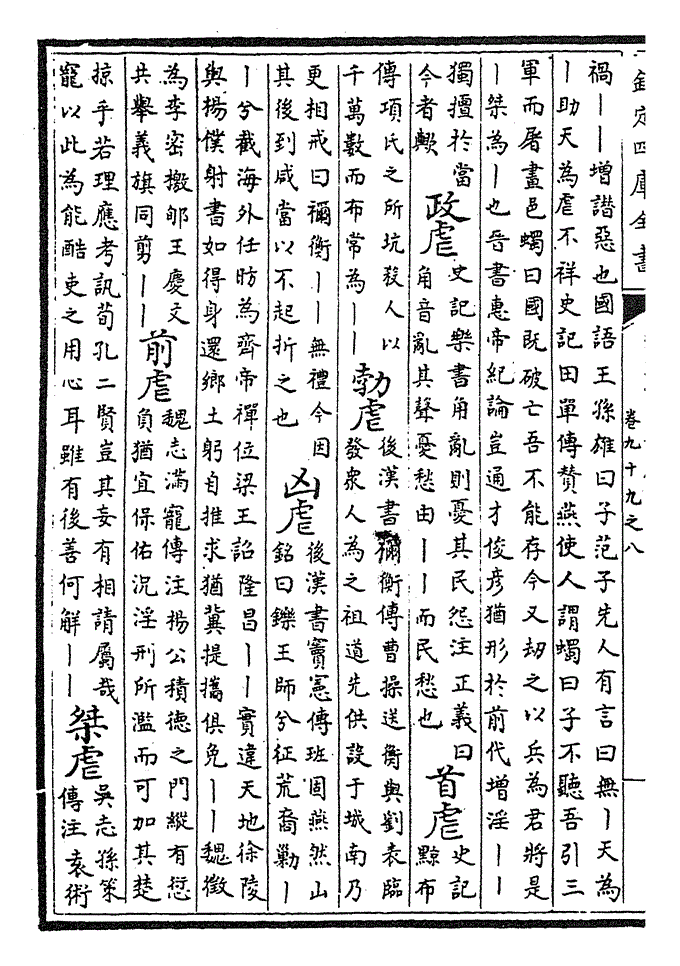 欽定四庫全書
卷九十九之八
禍丨丨增諧惡也國語王孫雄曰子范子先人有言曰無丨天為
丨助天為虐不祥史記田單傳贊燕使人謂蠋曰子不聽吾引三
軍而屠畫邑蠋曰國既破亡吾不能存今又刼之以兵為君將是
丨桀為丨也晉書惠帝紀論豈通才俊彥猶形於前代增淫丨丨
獨擅於當
今者歟
政虐
史記樂書角亂則憂其民怨注正義曰
角音亂其聲憂愁由丨丨而民愁也
首虐
史記
黥布
傳項氏之所坑殺人以
千萬數而布常為丨丨
勃虐
後漢書禰衡傳曹操送衡與劉表臨
發衆人為之祖道先供設于城南乃
更相戒曰禰衡丨丨無禮今因
其後到咸當以不起折之也
凶虐
後漢書竇憲傳班固燕然山
銘曰鑠王師兮征荒裔勦丨
丨兮截海外任昉為齊帝禪位梁王詔隆昌丨丨實違天地徐陵
與揚僕射書如得身還鄉土躬自推求猶冀提攜俱免丨丨魏徵
為李密檄郇王慶文
共舉義旗同剪丨丨
前虐
魏志滿寵傳注揚公積德之門縱有愆
負猶宜保佑況淫刑所濫而可加其楚
掠乎若理應考訊荀孔二賢豈其妄有相請屬哉
寵以此為能酷吏之用心耳雖有後善何解丨丨
桀虐
吳志孫策
傳注袁術